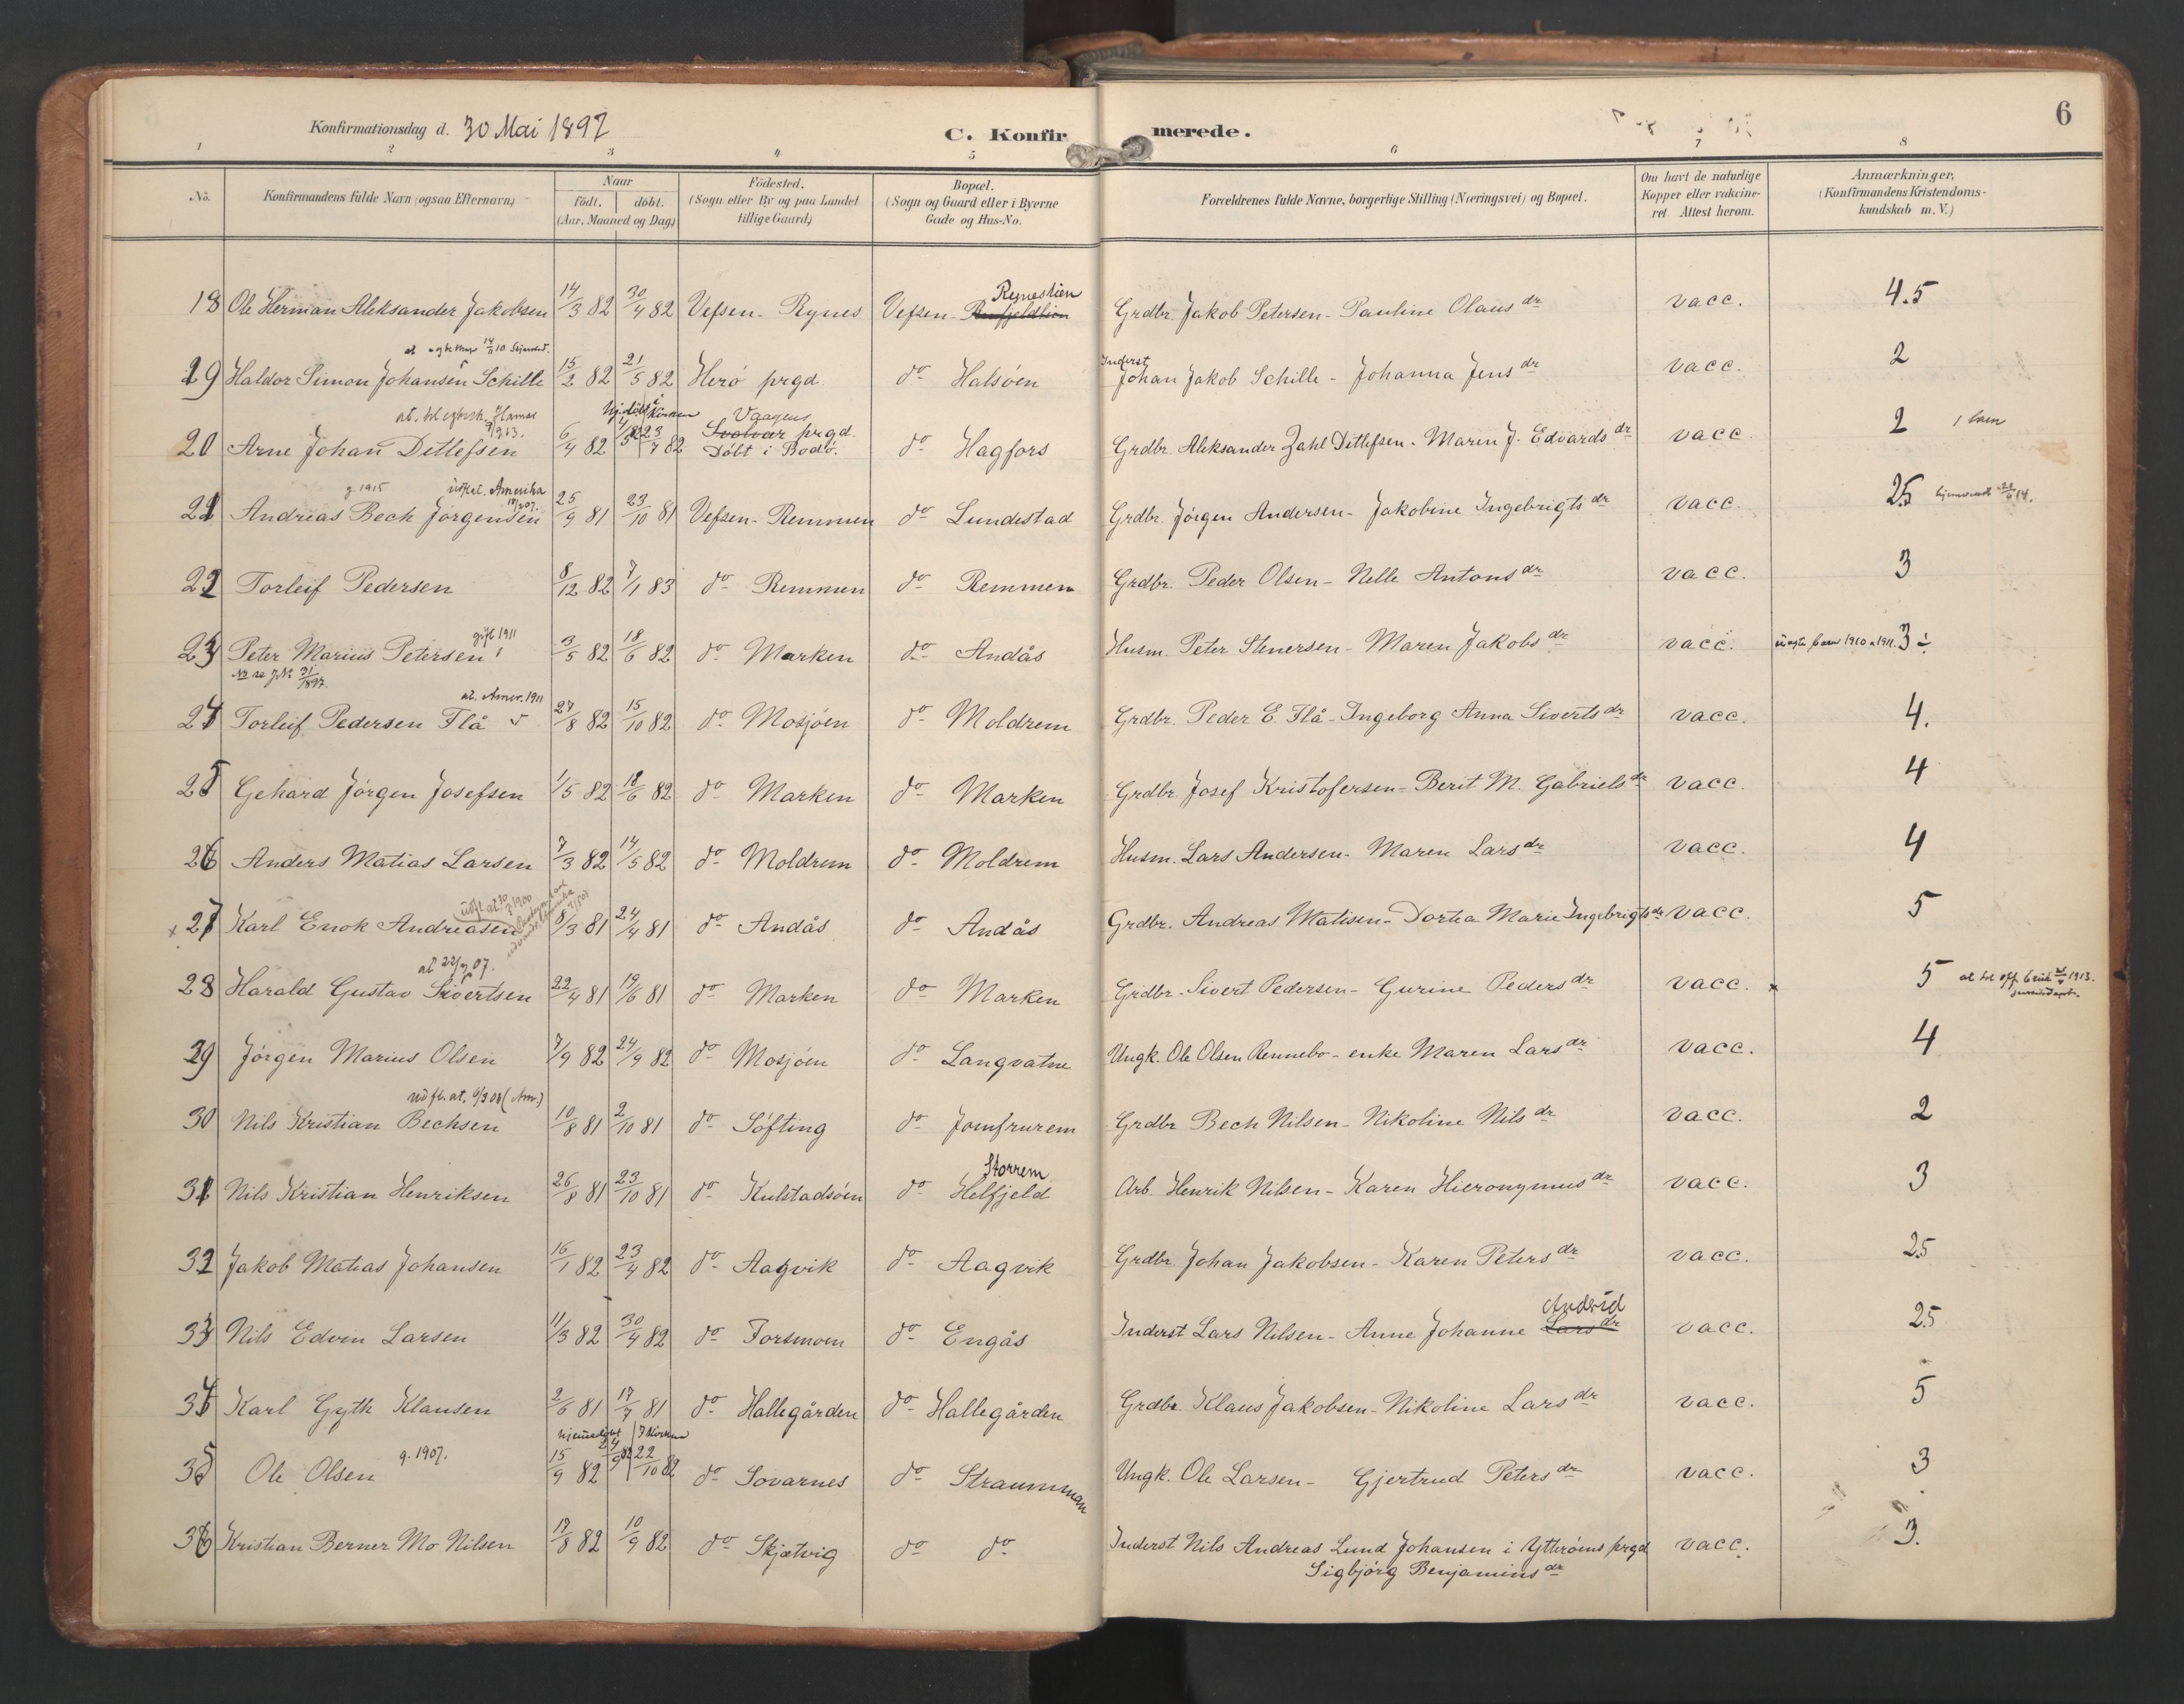 Konfirmationsdag d. 30 Mai 1897
C. Konfirmerede.
6
1 2 3 4 5 6 7 8
No. Konfirmandens fulde Navn (ogsaa Efternavn) Naar Födt. döbt. (Aar, Maaned og Dag) Födested. (Sogn eller By og paa Landet tillige Gaard) Bopæl. (Sogn og Gaard eller i Byerne Gade og Hus-No. Forældrenes fulde Navne, borgerlige Stilling (Næringsvei) og Bopæl. Om havt de naturlige Kopper eller vakcineret Attest herom. Anmærkninger, (Konfirmandens Kristendomskundskab m. V.)
18 Ole Herman Aleksander Jakobsen 14/3 82 30/4 82 Vefsen - Rynes Vefsen - Remeslien Grdbr. Jakob Petersen - Pauline Olausdr vacc. 4.5
19 Haldor Simon Johansen Schille 15/2 82 21/5 82 Herö prgd. do Halsöen Inderst Johan Jakob Schille - Johanna Jensdr vacc. 2
20 Arne Johan Ditlefsen 6/4 82 23/7 82 Vaagens Svolvær prgd. Döbt i Bodö. do Hagfors Grdbr. Aleksander Zahl Ditlefsen - Maren J. Edvardsdr vacc. 2
g 1915 udfl.at. Amerika
21 Andreas Bech Jörgensen 25/9 81 23/10 81 Vefsen - Remmen do Lundestad Grdbr. Jörgen Andersen - Jakobine Ingebrigtsdr vacc. 25
22 Torleif Pedersen 8/12 82 7/1 83 do Remmen do Remmen Grdbr. Peder Olsen - Nelle Antonsdr vacc. 3
gift 1911
23 Peter Marius Petersen 3/5 82 18/6 82 do Marken do Andås Husm. Peter Stenersen - Maren Jakobsdr vacc. 3÷
at. Amer. 1911
24 Torleif Pedersen Flå 27/8 82 15/10 82 do Mosjöen do Moldrem Grdbr. Peder E. Flå - Ingeborg Anna Sivertsdr vacc. 4.
25 Gehard Jörgen Josefsen 1/5 82 18/6 82 do Marken do Marken Grdbr. Josef Kristofersen - Berit M. Gabrielsdr vacc. 4
26 Anders Matias Larsen 7/3 82 14/5 82 do Moldrem do Moldrem Husm. Lars Andersen - Maren Larsdr vacc. 4
x 27 Karl Enok Andreasen 8/3 81 24/4 81 do Andås do Andås Grdbr. Andreas Matisen - Dortea Marie Ingebrigtsdr vacc. 5
at 22/9 07.
28 Harald Gustav Sivertsen 22/4 81 19/6 81 do Marken do Marken Grdbr. Sivert Pedersen - Gurine Pedersdr vacc. x 5
29 Jörgen Marius Olsen 7/9 82 24/9 82 do Mosjöen do Langvatne Ungk. Ole Olsen Rennebo - enke Maren Larsdr vacc. 4
udfl. at. 6/3 08 (Am.)
30 Nils Kristian Bechsen 10/8 81 2/10 81 do Söfting do Jomfrurem Grdbr Bech Nilsen - Nikoline Nilsdr vacc. 2
31 Nils Kristian Henriksen 26/8 81 23/10 81 do Kulstadsöen do Storrem Helfjeld Arb. Henrik Nilsen - Karen Hieronymusdr vacc. 3
32 Jakob Matias Johansen 16/1 82 23/4 82 do Aagvik do Aagvik Grdbr. Johan Jakobsen - Karen Petersdr vacc. 25
33 Nils Edvin Larsen 11/3 82 30/4 82 do Forsmoen do Engås Inderst Lars Nilsen - Anne Johanne Larsdr vacc. 25
34 Karl Gyth Klausen 2/6 81 17/7 81 do Hallegården do Hallegården Grdbr. Klaus Jakobsen - Nikoline Larsdr vacc. 5
35 Ole Olsen g. 1907. 15/9 82 hjemmedöbt 24/9 82 I Kirken 22/10 82 do Sovarnes do Straumman Ungk. Ole Larsen - Gjertrud Petersdr vacc. 3
36 Kristian Berner Mo Nilsen 17/8 82 10/9 82 do Skjætvig do do Inderst Nils Andreas Lund Johansen i Ytteröens prgd vacc. 3.
Sigbjörg Benjaminsdr